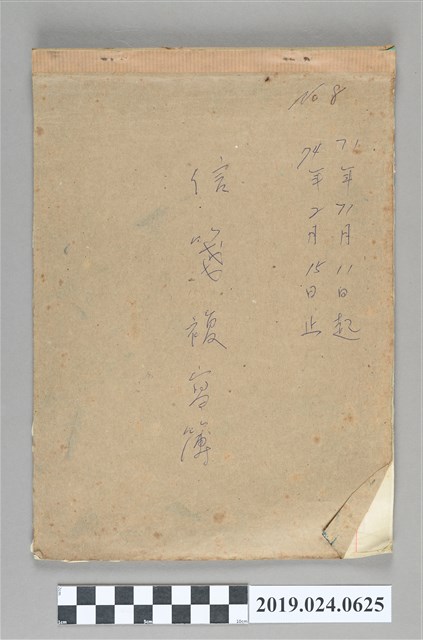 No 8
71年71月11日起
74年2月15日止
信箋複寫簿
2019.024.0625